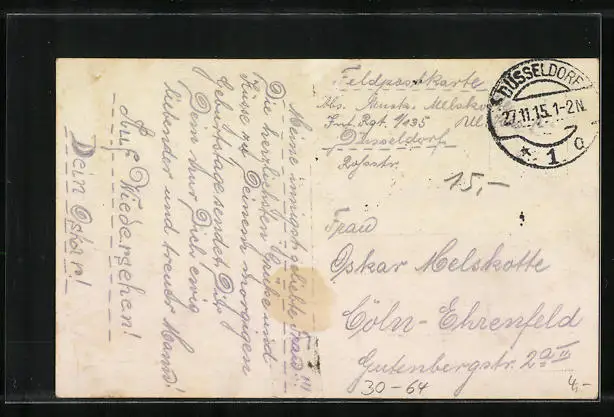 Feldpostkarte
Abs. Musk. Melskotte
Inf. Rgt. 135
Düsseldorf
Roßstr.
DÜSSELDORF
27.11.15. 1-2N
* 1 c
15,-
Frau
Oskar Melskotte
Cöln-Ehrenfeld
Gutenbergstr. 2a II
30-64
4,-
Meine innigst geliebte Frau!!!
Die herzlichsten Grüße und
Küsse zu Deinem morgigen
Geburtstage sendet Dir
Dein nur Dich ewig
liebender und treuer Mann!
Auf Wiedersehen!
Dein Oskar!